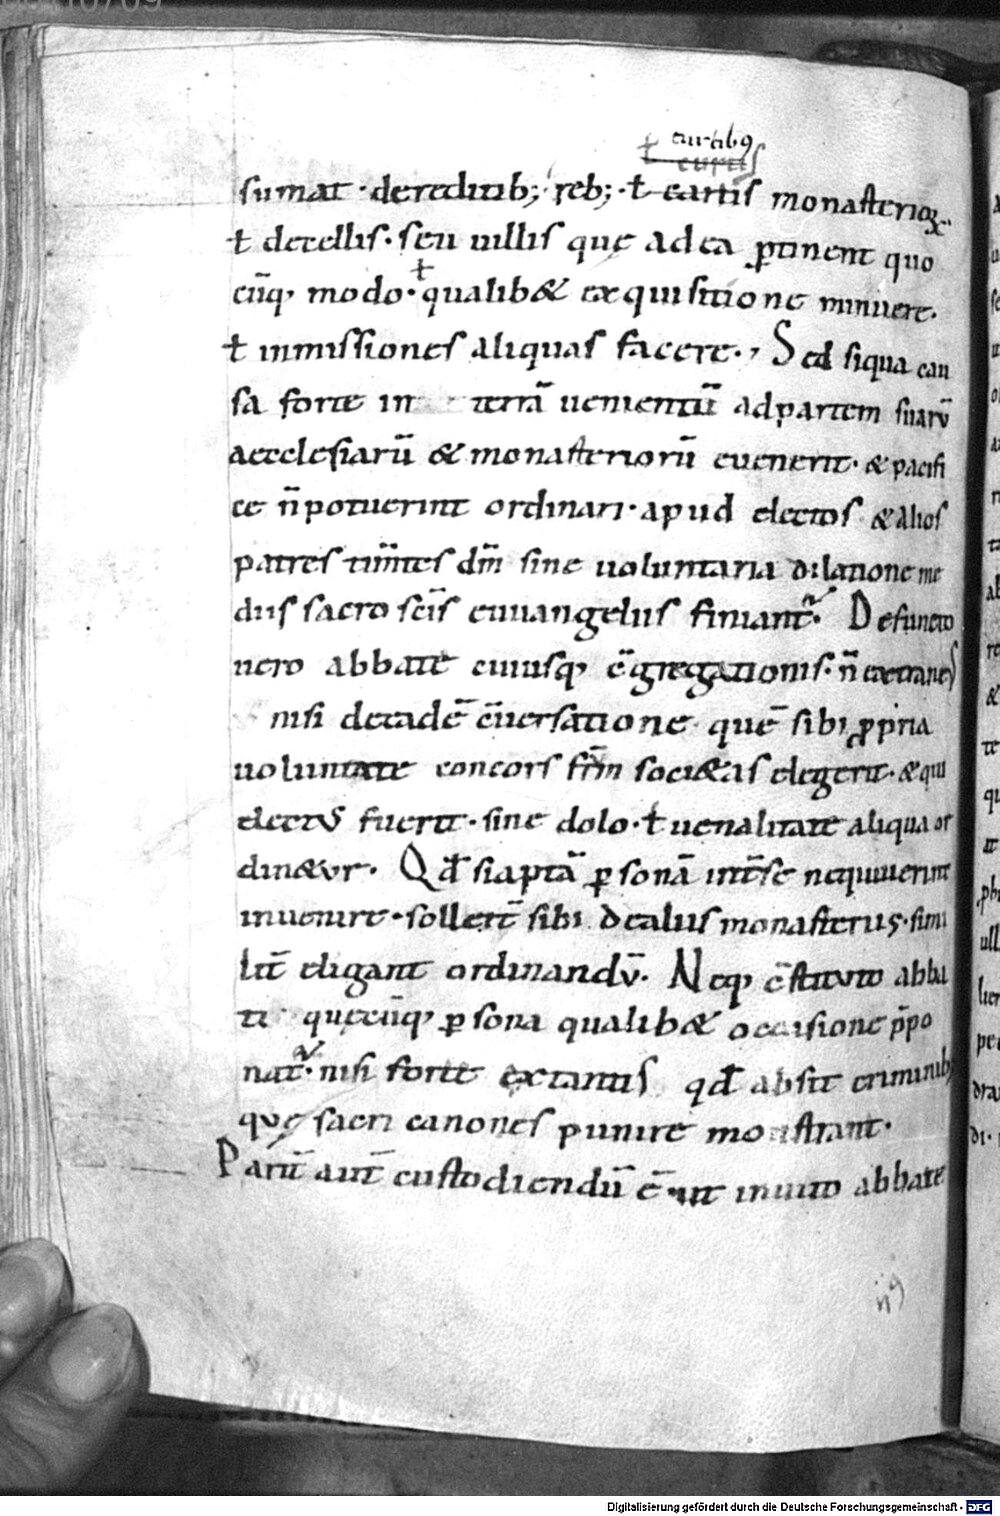 ł curtib9
curtis
sumat · de reditib; · reb; · ł cartis monasterioꝝ
ł de cellis · seu uillis quę ad ea ꝑtinent quo
cūq, modo · qualib& exquisitione minuere ·
ł inmissiones aliquas facere · , Sed siqua cau
sa forte in terrā uenientiū ad partem suarū
aecclesiarū & monasteriorū euenerit · & pacifi
ce n̄ potuerint ordinari · apud electos & alios
patres tim̄tes dm̄ sine uoluntaria dilatione me
diis sacro sc̄is euuangeliis finiant̄ · Defuncto
uero abbate cuiusq, c̄gregationis · n̄ extraneus
nisi de eadē c̄uersatione quē sibi ꝓpria
uoluntate concors frm̄ soci&as elegerit · & qui
electus fuerit · sine dolo · ł uenalitate aliqua or
din&ur · Qđ si aptā ꝑsonā int̄ se nequiuerint
inuenire · sollert̄ sibi de aliis monasteriis · simi
lit̄ eligant ordinandū · Neq, c̄stituto abba
ti quęcūq, ꝑsona qualib& occasione p̄po
nat̄ · nisi forte extantis qđ absit criminib;
quę sacri canones punire monstrant ·
Parū aut̄ custodiendū ē · ut inuito abbate
Digitalisierung gefördert durch die Deutsche Forschungsgemeinschaft · DFG